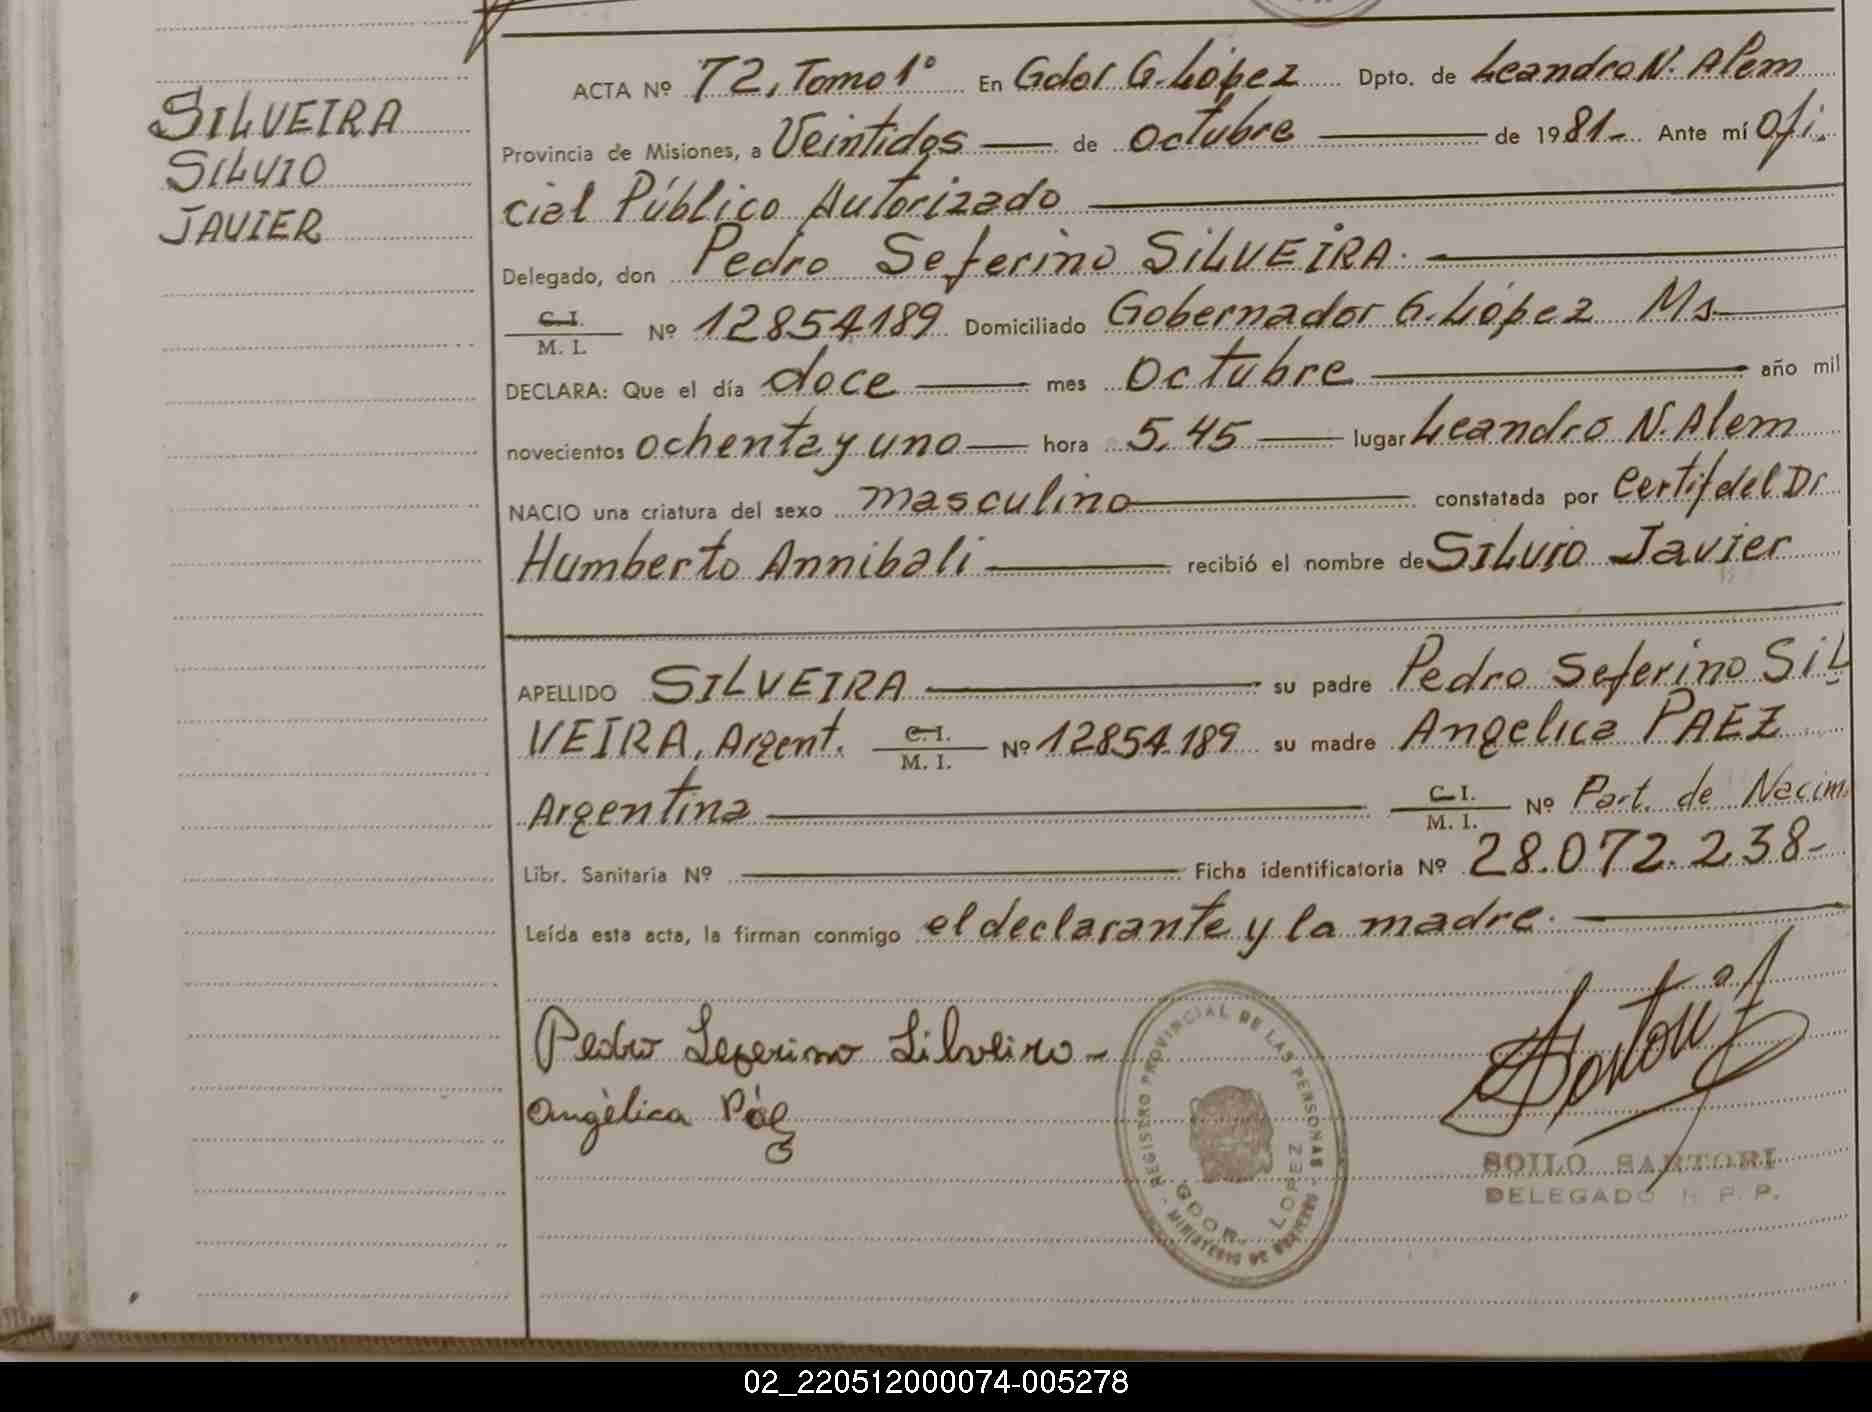 SILVEIRA
SILVIO
JAVIER
ACTA Nº 72, Tomo 1º En Gdor G. López Dpto. de Leandro N. Alem
Provincia de Misiones, a Veintidos de octubre de 1981- Ante mí Ofi-
cial Público Autorizado
Delegado, don Pedro Seferino SILVEIRA.
C.I. / M. I. Nº 12854189 Domiciliado Gobernador G. López Ms
DECLARA: Que el día doce mes octubre año mil
novecientos ochenta y uno hora 5,45 lugar Leandro N. Alem
NACIO una criatura del sexo masculino constatada por Certif del Dr
Humberto Annibali recibió el nombre de SILVIO Javier
APELLIDO SILVEIRA su padre Pedro Seferino SIL
VEIRA, Argent. C.I. / M. I. Nº 12854.189 su madre Angelica PAEZ
Argentina C.I. / M. I. Nº Part. de Nacim.
Libr. Sanitaria Nº Ficha identificatoria Nº 28.072.238-
Leída esta acta, la firman conmigo el declarante y la madre.
Pedro Seferino Silveira -
Angélica Páez
REGISTRO PROVINCIAL DE LAS PERSONAS
GDOR. LOPEZ
MINISTERIO DE GOBIERNO
SOILO SARTORI
DELEGADO R. P. P.
02_220512000074-005278